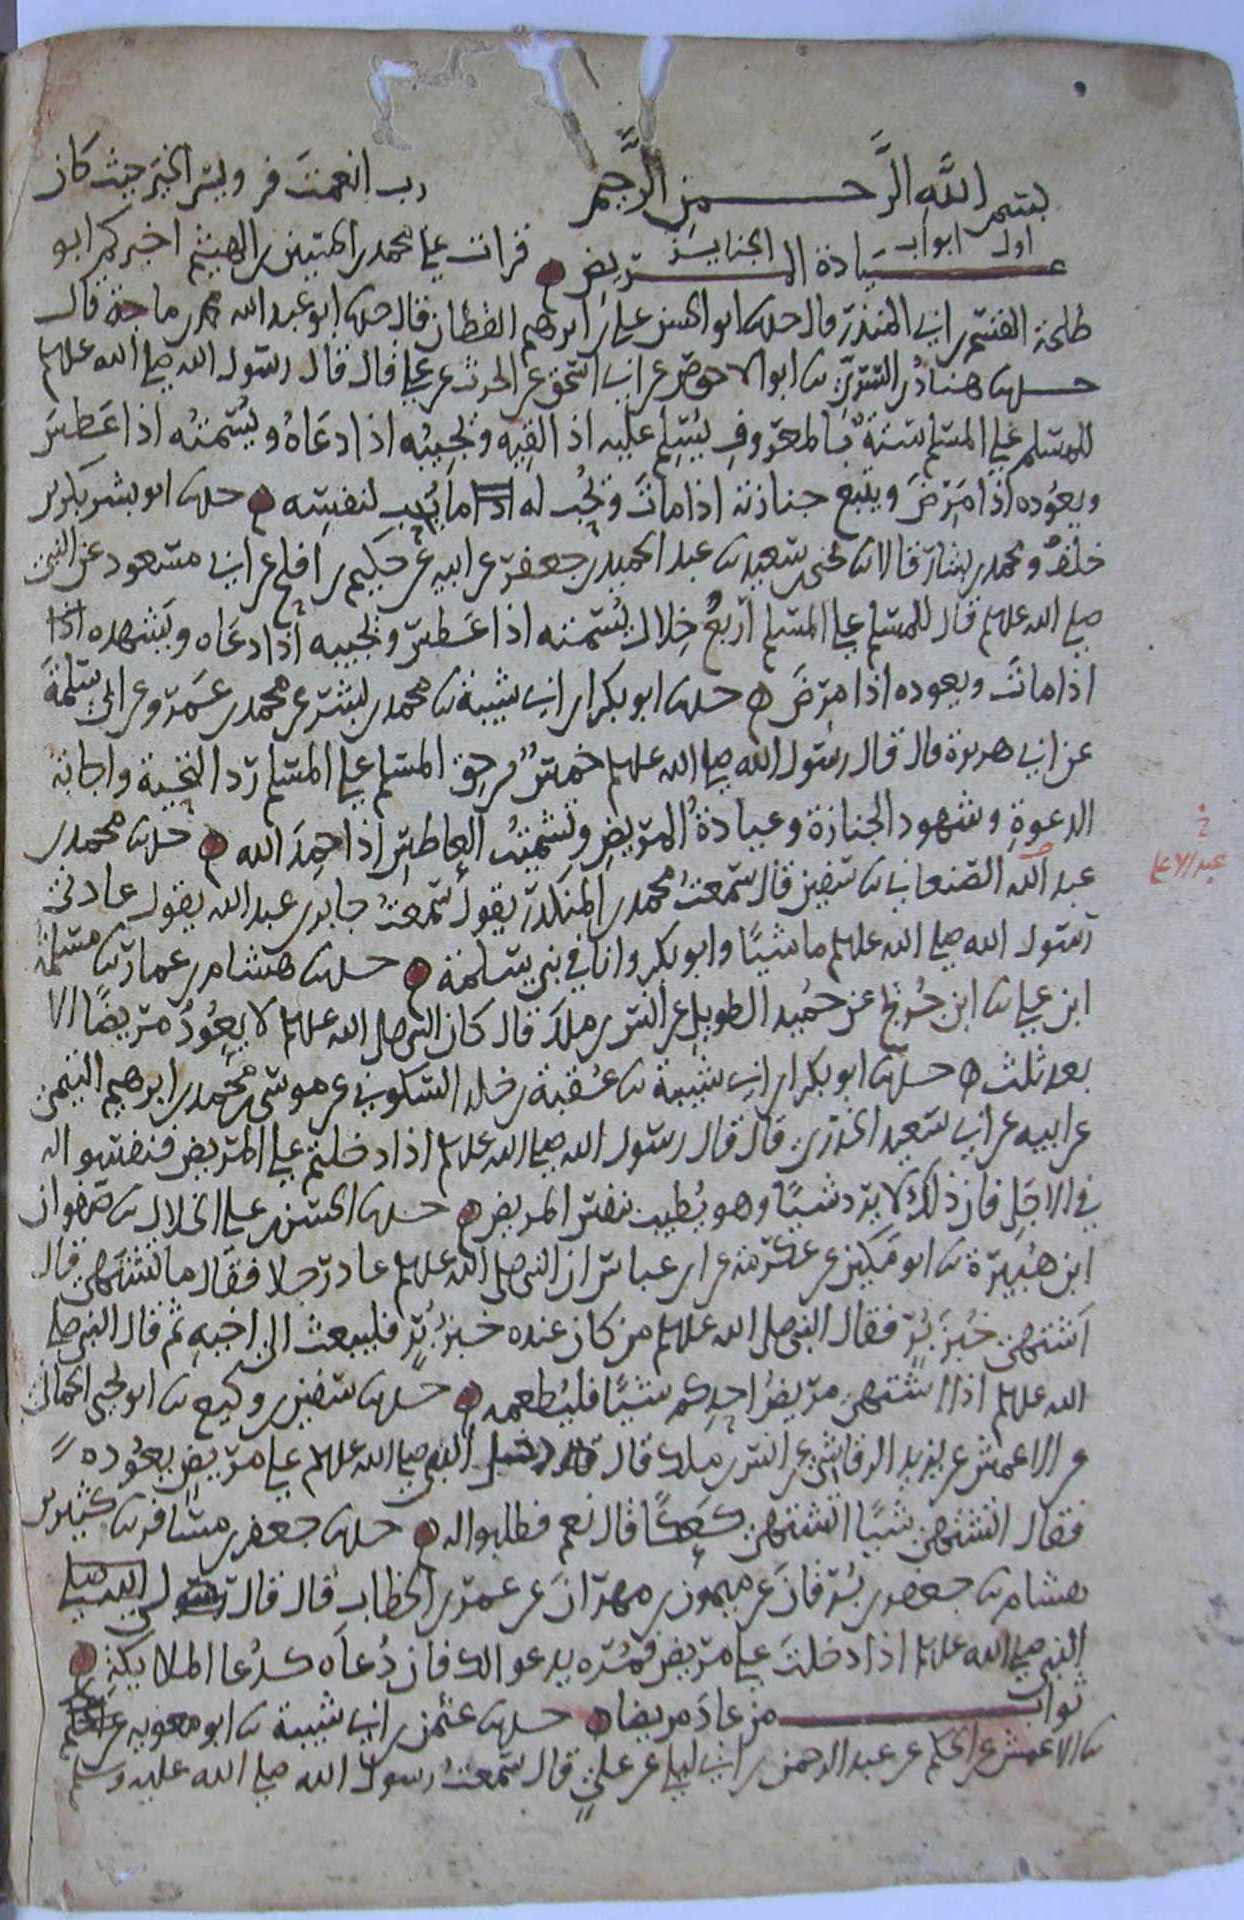 بسم الله الرحمن الرحيم رب انعمت فزد ويسر الخير حيث كان
اول ابواب الجنايز
عيادة المريض قرات على محمد بن الحسين بن الهيثم اخبركم ابو
طلحة القسم بن ابي المنذر قال حدثنا ابو الحسن علي بن ابرهيم القطان قال حدثنا ابو عبد الله محمد بن ماجة قال
حدثنا هناد بن السري ثنا ابو الاحوص عن ابي اسحق عن الحرث عن علي قال قال رسول الله صلى الله عليه وسلم
للمسلم على المسلم ستة بالمعروف يسلم عليه اذا لقيه ويجيبه اذا دعاه ويشمته اذا عطس
ويعوده اذا مرض ويتبع جنازته اذا مات ويحب له ما يحب لنفسه حدثنا ابو بشر بكر بن
خلف ومحمد بن بشار قالا ثنا يحيى بن سعيد ثنا عبد الحميد بن جعفر عن ابيه عن حكيم بن افلح عن ابي مسعود عن النبي
صلى الله عليه وسلم قال للمسلم على المسلم اربع خلال يشمته اذا عطس ويجيبه اذا دعاه ويشهده اذا
اذا مات ويعوده اذا مرض حدثنا ابو بكر ابن ابي شيبة ثنا محمد بن بشر عن محمد بن عمرو عن ابي سلمة
عن ابي هريرة قال قال رسول الله صلى الله عليه وسلم خمس من حق المسلم على المسلم رد التحية واجابة
الدعوة وشهود الجنازة وعيادة المريض وتشميت العاطس اذا حمد الله حدثنا محمد بن
عبد الله الصنعاني ثنا سفين قال سمعت محمد بن المنكدر يقول سمعت جابر بن عبد الله يقول عادني
عبد الاعلى
رسول الله صلى الله عليه وسلم ماشيا وابو بكر وانا في بني سلمة حدثنا هشام بن عمار ثنا مسلمة
ابن علي ثنا ابن جريج عن حميد الطويل عن انس بن ملك قال كان النبي صلى الله عليه وسلم لا يعود مريضا الا
بعد ثلث حدثنا ابو بكر ابن ابي شيبة ثنا عقبة بن خلد السكوني عن موسى بن محمد بن ابرهيم التيمي
عن ابيه عن ابي سعيد الخدري قال قال رسول الله صلى الله عليه وسلم اذا دخلتم على المريض فنفسوا له
في الاجل فان ذلك لا يرد شيئا وهو يطيب نفس المريض حدثنا الحسن بن علي الخلال ثنا صفوان
ابن هبيرة ثنا ابو مكين عن عكرمة عن ابن عباس ان النبي صلى الله عليه وسلم عاد رجلا فقال ما تشتهي قال
اشتهي خبز بر فقال النبي صلى الله عليه وسلم من كان عنده خبز بر فليبعث الى اخيه ثم قال النبي صلى
الله عليه وسلم اذا اشتهى مريض احدكم شيئا فليطعمه حدثنا سفين بن وكيع ثنا ابو يحيى الحماني
عن الاعمش عن يزيد الرقاشي عن انس بن ملك قال دخل النبي صلى الله عليه وسلم على مريض يعوده
فقال اتشتهي شيئا اتشتهي كعكا قال نعم فطلبوا له حدثنا جعفر بن مسافر ثنا كثير بن
هشام ثنا جعفر بن برقان عن ميمون بن مهران عن عمر بن الخطاب قال قال لي
النبي صلى الله عليه وسلم اذا دخلت على مريض فمره يدعو لك فان دعاه كدعا الملايكة
ثواب من عاد مريضا حدثنا عثمن بن ابي شيبة ثنا ابو معوية
ثنا الاعمش عن الحكم عن عبد الرحمن بن ابي ليلى عن علي قال سمعت رسول الله صلى الله عليه وسلم